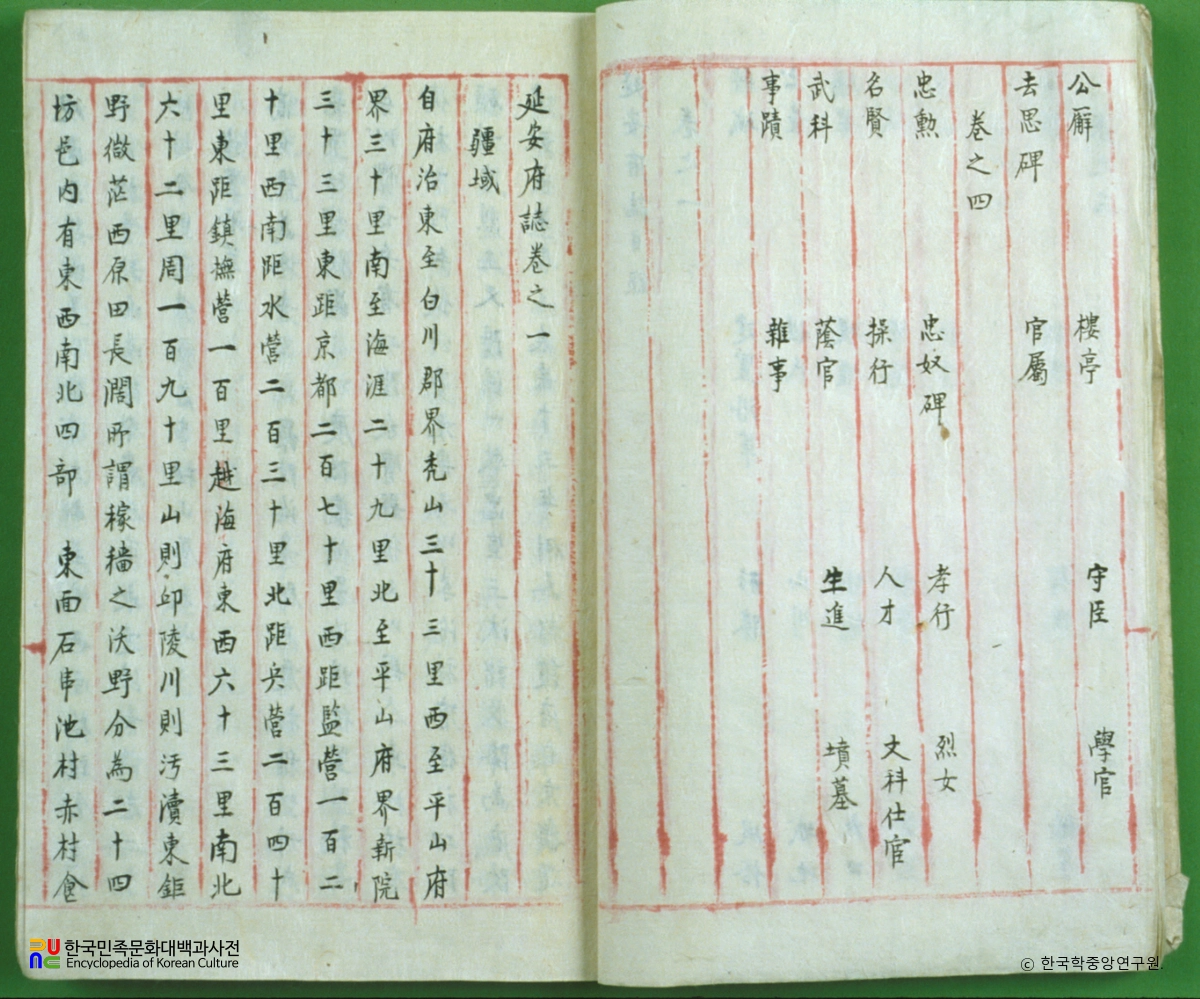 公廨 樓亭 守臣 學官
去思碑 官屬
卷之四
忠勲 忠奴碑 孝行 烈女
名賢 操行 人才 文科仕宦
武科 蔭官 生進 墳墓
事蹟 雜事
延安府誌卷之一
疆域
自府治東至白川郡界禿山三十三里西至平山府
界三十里南至海涯二十九里北至平山府界新院
三十三里東距京都二百七十里西距監營一百二
十里西南距水營二百三十里北距兵營二百四十
里東距鎮撫營一百里越海府東西六十三里南北
六十二里周一百九十里山則卬陵川則汚瀆東鉅
野微茫西原田長濶所謂稼穡之沃野分為二十四
坊邑内有東西南北四部 東面石串池村赤村食
한국민족문화대백과사전
Encyclopedia of Korean Culture
ⓒ 한국학중앙연구원.